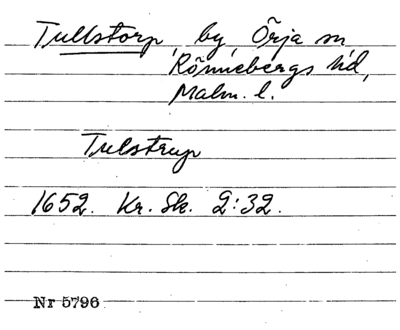 Tullstorp, by, Örja sn
Rönnebergs hd,
Malm. l.
Tulstrup
1652. Kr. Sk. 2:32.
Nr 5796